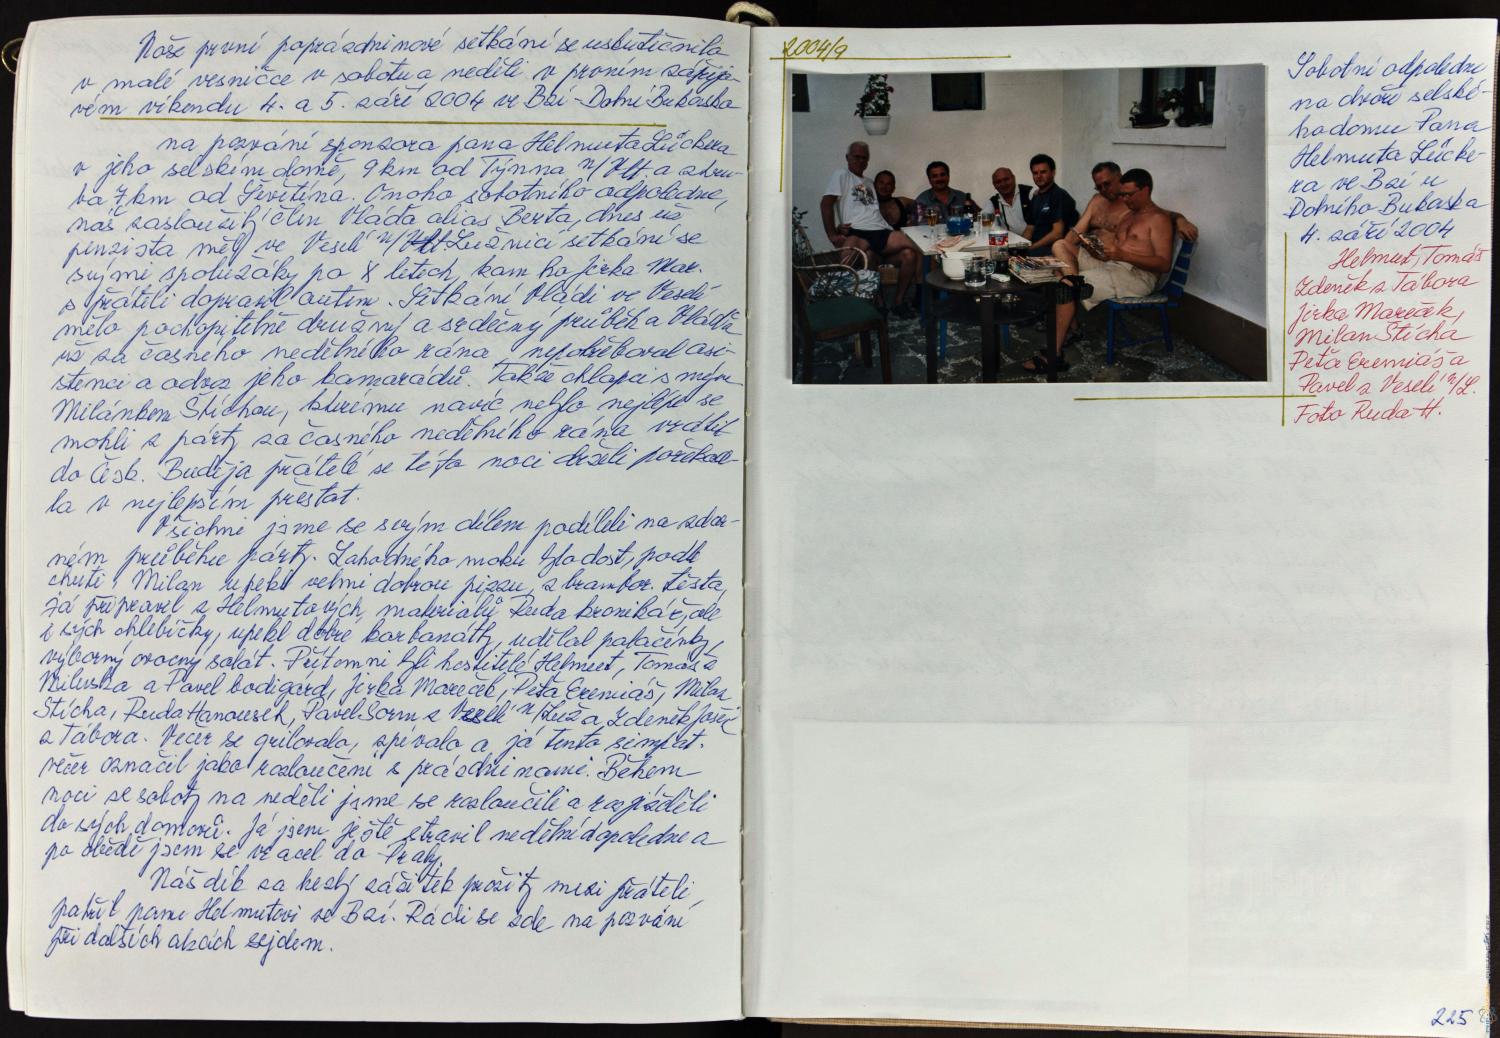 Naše první poprázdninové setkání se uskutečnilo
v malé vesničce v sobotu a neděli v prvním zářijo-
vém víkendu 4. a 5. září 2004 ve Bzí - Dolní Bukovsko
na pozvání sponzora pana Helmuta Lückera
v jeho selském domě, 9 km od Týnna n/Vlt. a zhru-
ba 7 km od Ševětína. Onoho sobotního odpoledne,
náš zasloužilý člen Vláďa alias Berta, dnes už
penzista měl ve Veselí n/ Lužnicí setkání se
svými spolužáky po X letech, kam ho Jirka Mar.
s přáteli dopravil autem. Setkání Vládi ve Veselí
mělo pochopitelně družný a srdečný průběh a Vláďa
už za časného nedělního rána nepotřeboval asi-
stenci a odvoz jeho kamarádů. Takže chlapci s mým
Milánkem Štíchou, kterému navíc nebylo nejlépe se
mohli z párty za časného nedělního rána vrátit
do Česk. Buděja přátelé se této noci drželi pořekad-
la v nejlepším přestat.
Všichni jsme se svým dílem podíleli na zdár-
ném průběhu párty. Lahodného moku byl dost, podle
chuti, Milan upekl velmi dobrou pizzu, z brambor. těsta,
Já připravil z Helmutových materiálů Ruda kronikář, ale
i svých chlebíčky, upekl dobré karbanátky, udělal palačinky,
výborný ovocný salát. Přítomni byli hostitelé Helmut, Tomáš a
Miluška a Pavel bodigárd, Jirka Mareček, Peťa Eremiáš, Milan
Štícha, Ruda Hanousek, Pavel Šorm z Veselí n/Luž a Zdeněk
z Tábora. Večer se grilovalo, zpívalo a já tento simpat.
večer označil jako rozloučení s prázdninami. Během
noci ze soboty na neděli jsme se rozloučili a rozjížděli
do svých domovů. Já jsem ještě strávil nedělní dopoledne a
po obědě jsem se vracel do Prahy.
Náš dík za hezký zážitek prožitý mezi přáteli,
patřil panu Helmutovi ve Bzí. Rádi se zde na pozvání
při dalších akcích sejdem.
2004/9
Sobotní odpoledne
na dvoře selské-
ho domu Pana
Helmuta Lücke-
ra ve Bzí u
Dolního Bukovska
4. září 2004
Helmut, Tomáš
Zdeněk z Tábora
Jirka Mareček,
Milan Štícha
Peťa Eremiáš a
Pavel z Veselí n/L.
Foto Ruda H.
225